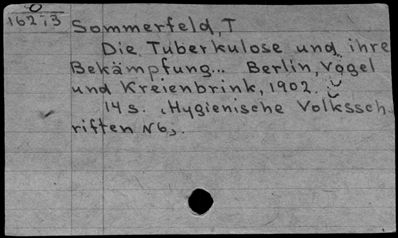 O
16273
Sommerfeld, T
Die Tuberkulose und ihre
Bekämpfung... Berlin, Vogel
und Kreienbrink, 1902.
14 s. (Hygienische Volkssch
riften N6).